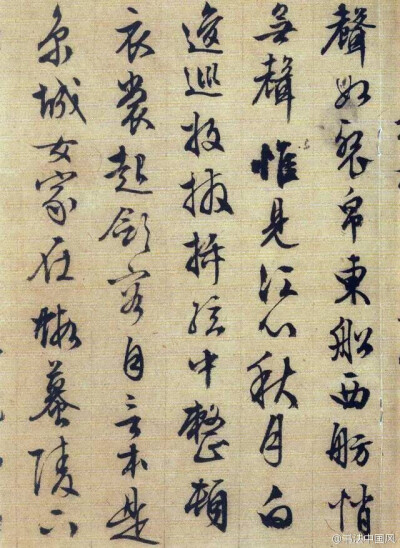 聲如裂帛東船西舫悄
無聲惟見江心秋月白
逡巡放撥插絃中整頓
衣裳起斂容自言本是
京城女家在蝦蟇陵下
@书法中国风